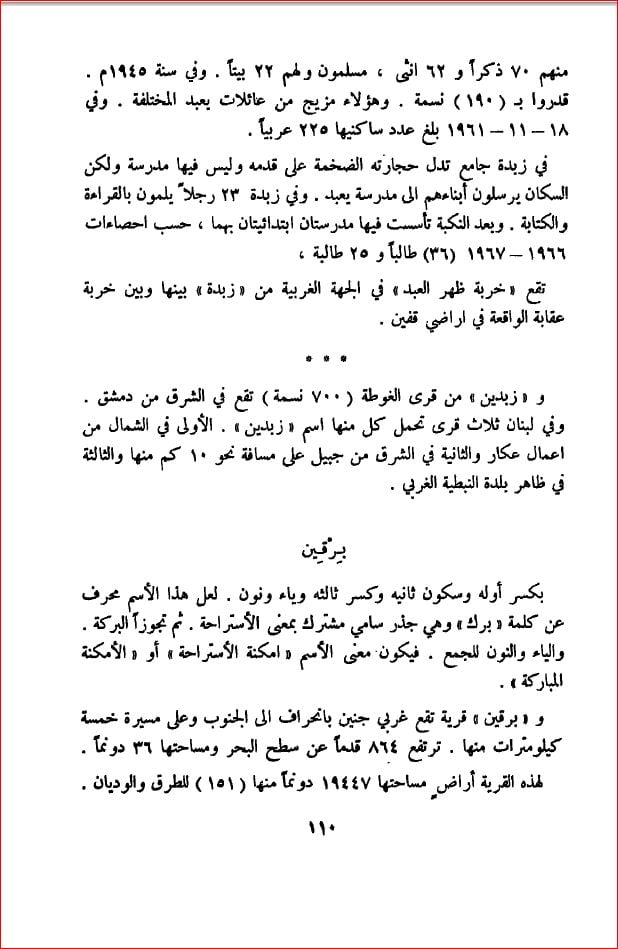 منهم ٧٠ ذكراً و ٦٢ انثى ، مسلمون ولهم ٢٢ بيتاً . وفي سنة ١٩٤٥م .
قدروا بـ ( ١٩٠ ) نسمة . وهؤلاء مزيج من عائلات يعبد المختلفة . وفي
١٨ – ١١ – ١٩٦١ بلغ عدد ساكنيها ٢٢٥ عربياً .
في زبدة جامع تدل حجارته الضخمة على قدمه وليس فيها مدرسة ولكن
السكان يرسلون أبناءهم الى مدرسة يعبد . وفي زبدة ٢٣ رجلاً يلمون بالقراءة
والكتابة . وبعد النكبة تأسست فيها مدرستان ابتدائيتان بهما ، حسب احصاءات
١٩٦٦ – ١٩٦٧ (٣٦) طالباً و ٢٥ طالبة ،
تقع «خربة ظهر العبد» في الجهة الغربية من «زبدة» بينها وبين خربة
عقابة الواقعة في اراضي قفين .
* * *
و «زبدين» من قرى الغوطة ( ٧٠٠ نسمة ) تقع في الشرق من دمشق .
وفي لبنان ثلاث قرى تحمل كل منها اسم «زبدين» . الأولى في الشمال من
اعمال عكار والثانية في الشرق من جبيل على مسافة نحو ١٠ كم منها والثالثة
في ظاهر بلدة النبطية الغربي .
بِرْقِين
بكسر أوله وسكون ثانيه وكسر ثالثه وياء ونون . لعل هذا الأسم محرف
عن كلمة «برك» وهي جذر سامي مشترك بمعنى الأستراحة . ثم تجوزاً البركة .
والياء والنون للجمع . فيكون معنى الأسم «امكنة الأستراحة» أو «الأمكنة
المباركة» .
و «برقين» قرية تقع غربي جنين بانحراف الى الجنوب وعلى مسيرة خمسة
كيلومترات منها . ترتفع ٨٦٤ قدماً عن سطح البحر ومساحتها ٣٦ دونماً .
لهذه القرية أراضٍ مساحتها ١٩٤٤٧ دونماً منها ( ١٥١ ) للطرق والوديان .
١١٠